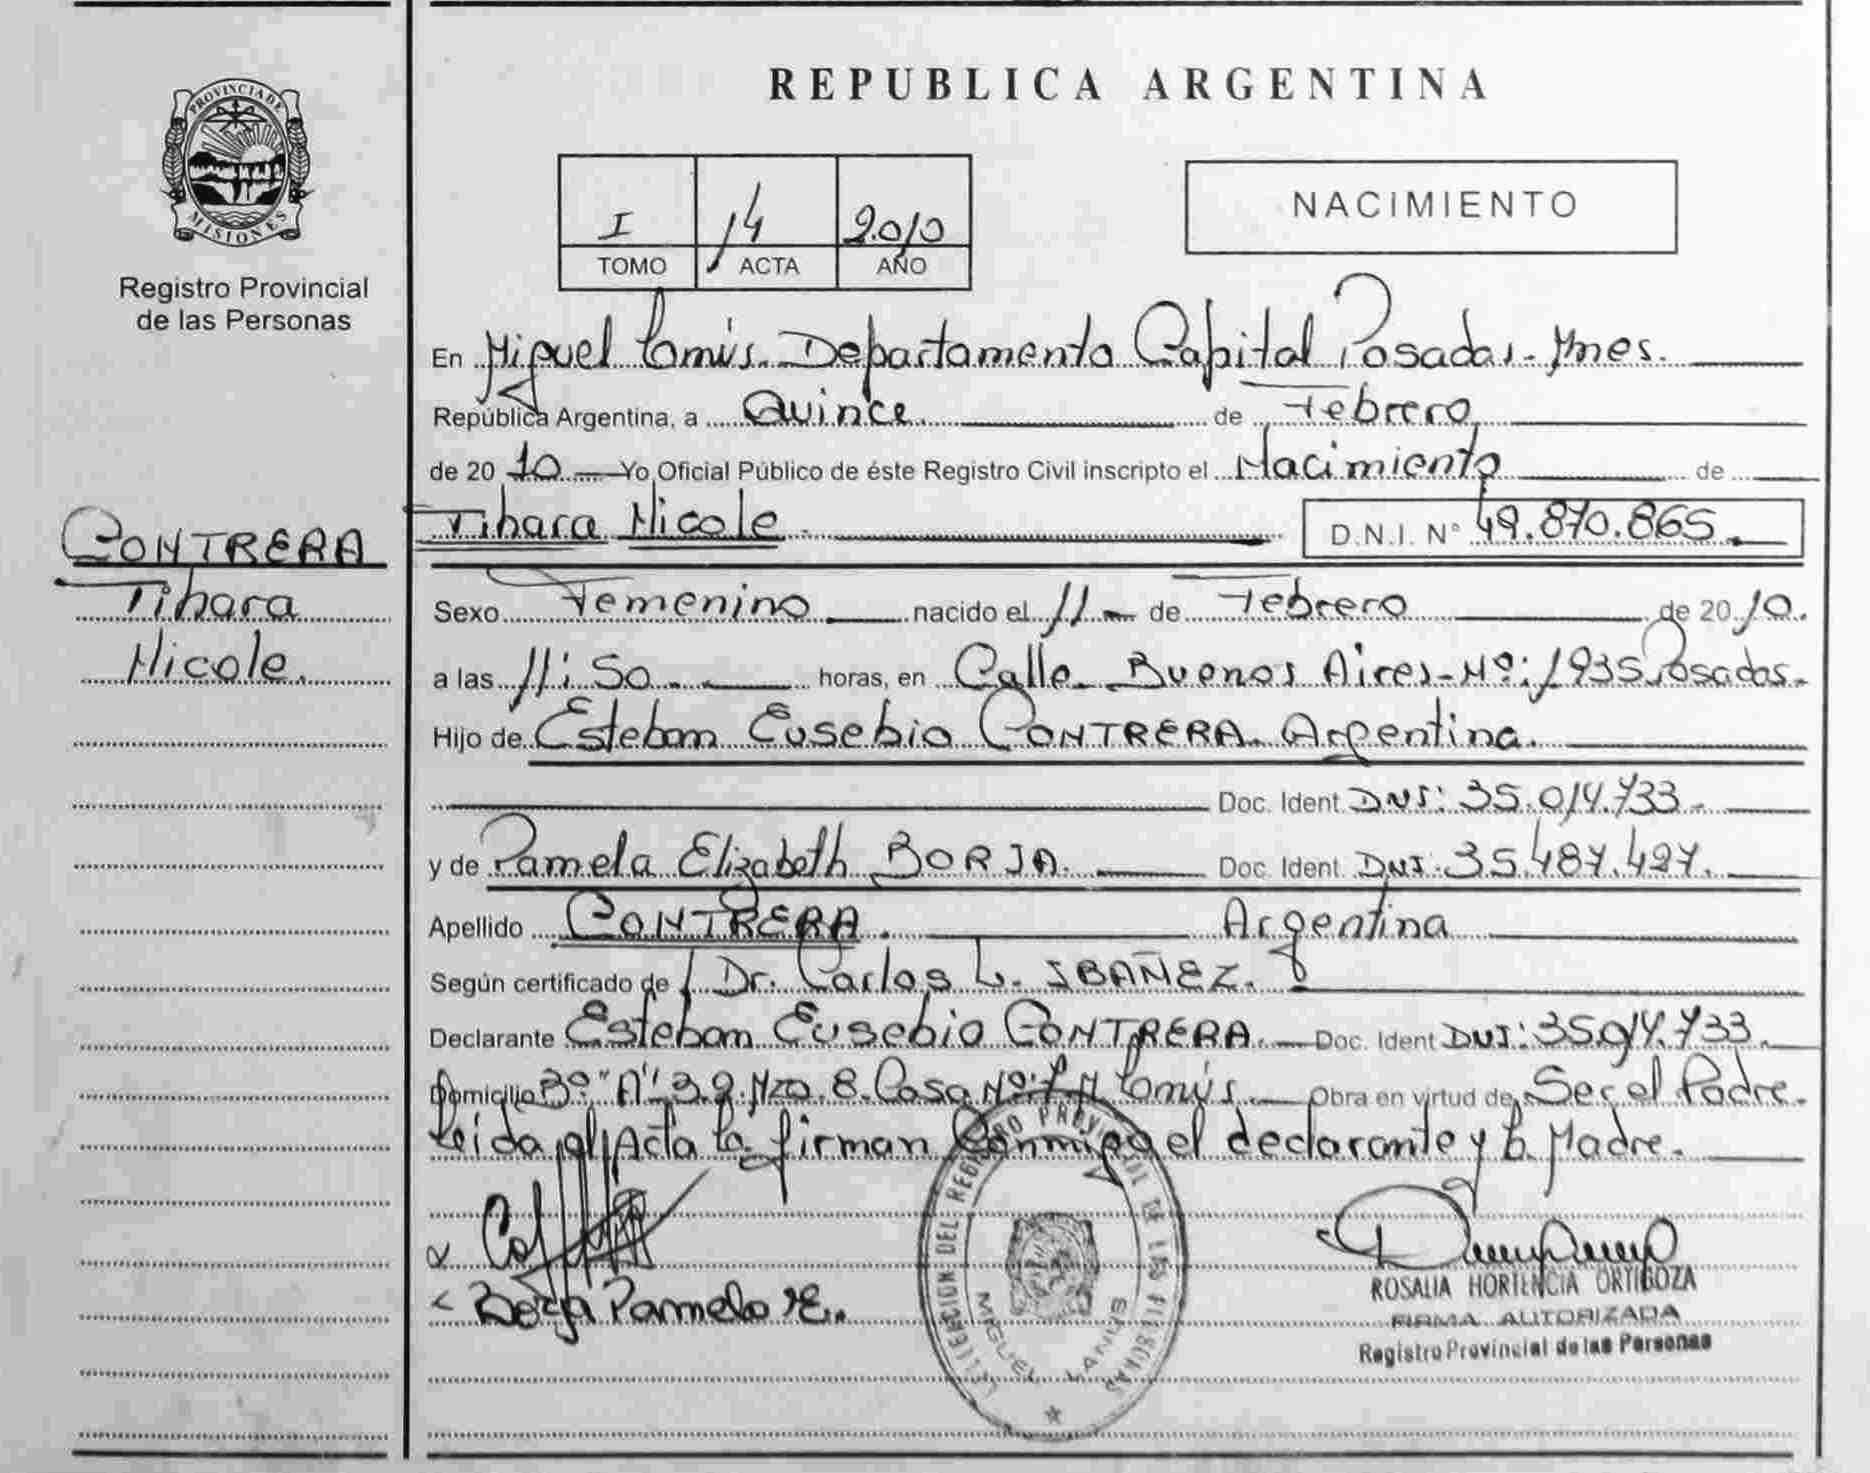 REPUBLICA ARGENTINA
PROVINCIA DE
MISIONES
Registro Provincial
de las Personas
I 14 2.010
TOMO ACTA AÑO
NACIMIENTO
En Miguel Lanús. Departamento Capital Posadas - Mnes.
República Argentina, a Quince de Febrero
de 20 10 Yo Oficial Público de éste Registro Civil inscripto el Nacimiento de
CONTRERA
Tihara
Nicole.
Tihara Nicole. D.N.I. N° 49.870.865.
Sexo Femenino nacido el 11 - de Febrero de 20 10.
a las 11:50. horas, en Calle Buenos Aires - Nº: 1935 Posadas.
Hijo de Esteban Eusebio CONTRERA. Argentina.
Doc. Ident. DNI: 35.014.733.
y de Pamela Elizabeth BORJA. Doc. Ident. DNI: 35.487.427.
Apellido CONTRERA. Argentina
Según certificado de Dr. Carlos L. IBAÑEZ.
Declarante Esteban Eusebio CONTRERA. Doc. Ident DNI: 35.014.733.
Domicilio Bº "A" 3.2. Mza. 8. Casa Nº: 7 M Lanús. Obra en virtud de Ser el Padre.
Leida el Acta la firman Conmigo el declarante y la Madre.
Borja Pamela E.
ROSALIA HORTENCIA ORTIGOZA
FIRMA AUTORIZADA
Registro Provincial de las Personas
DEL REGISTRO PROVINCIAL DE LAS PERSONAS
MIGUEL LANUS